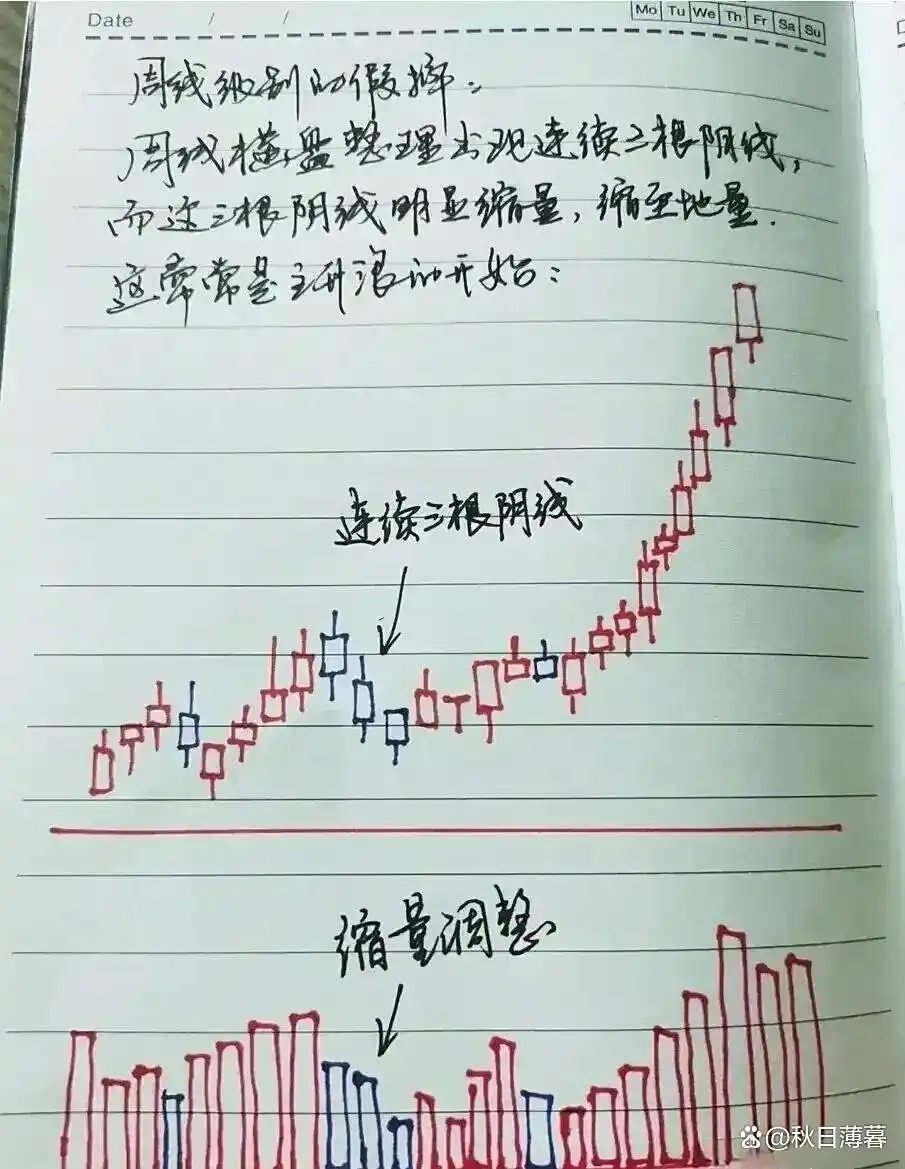 Date / /
Mo Tu We Th Fr Sa Su
周线级别的假摔：
周线横盘整理出现连续三根阴线，
而这三根阴线明显缩量，缩至地量.
这常常是主升浪的开始：
连续三根阴线
缩量调整
@秋日薄暮